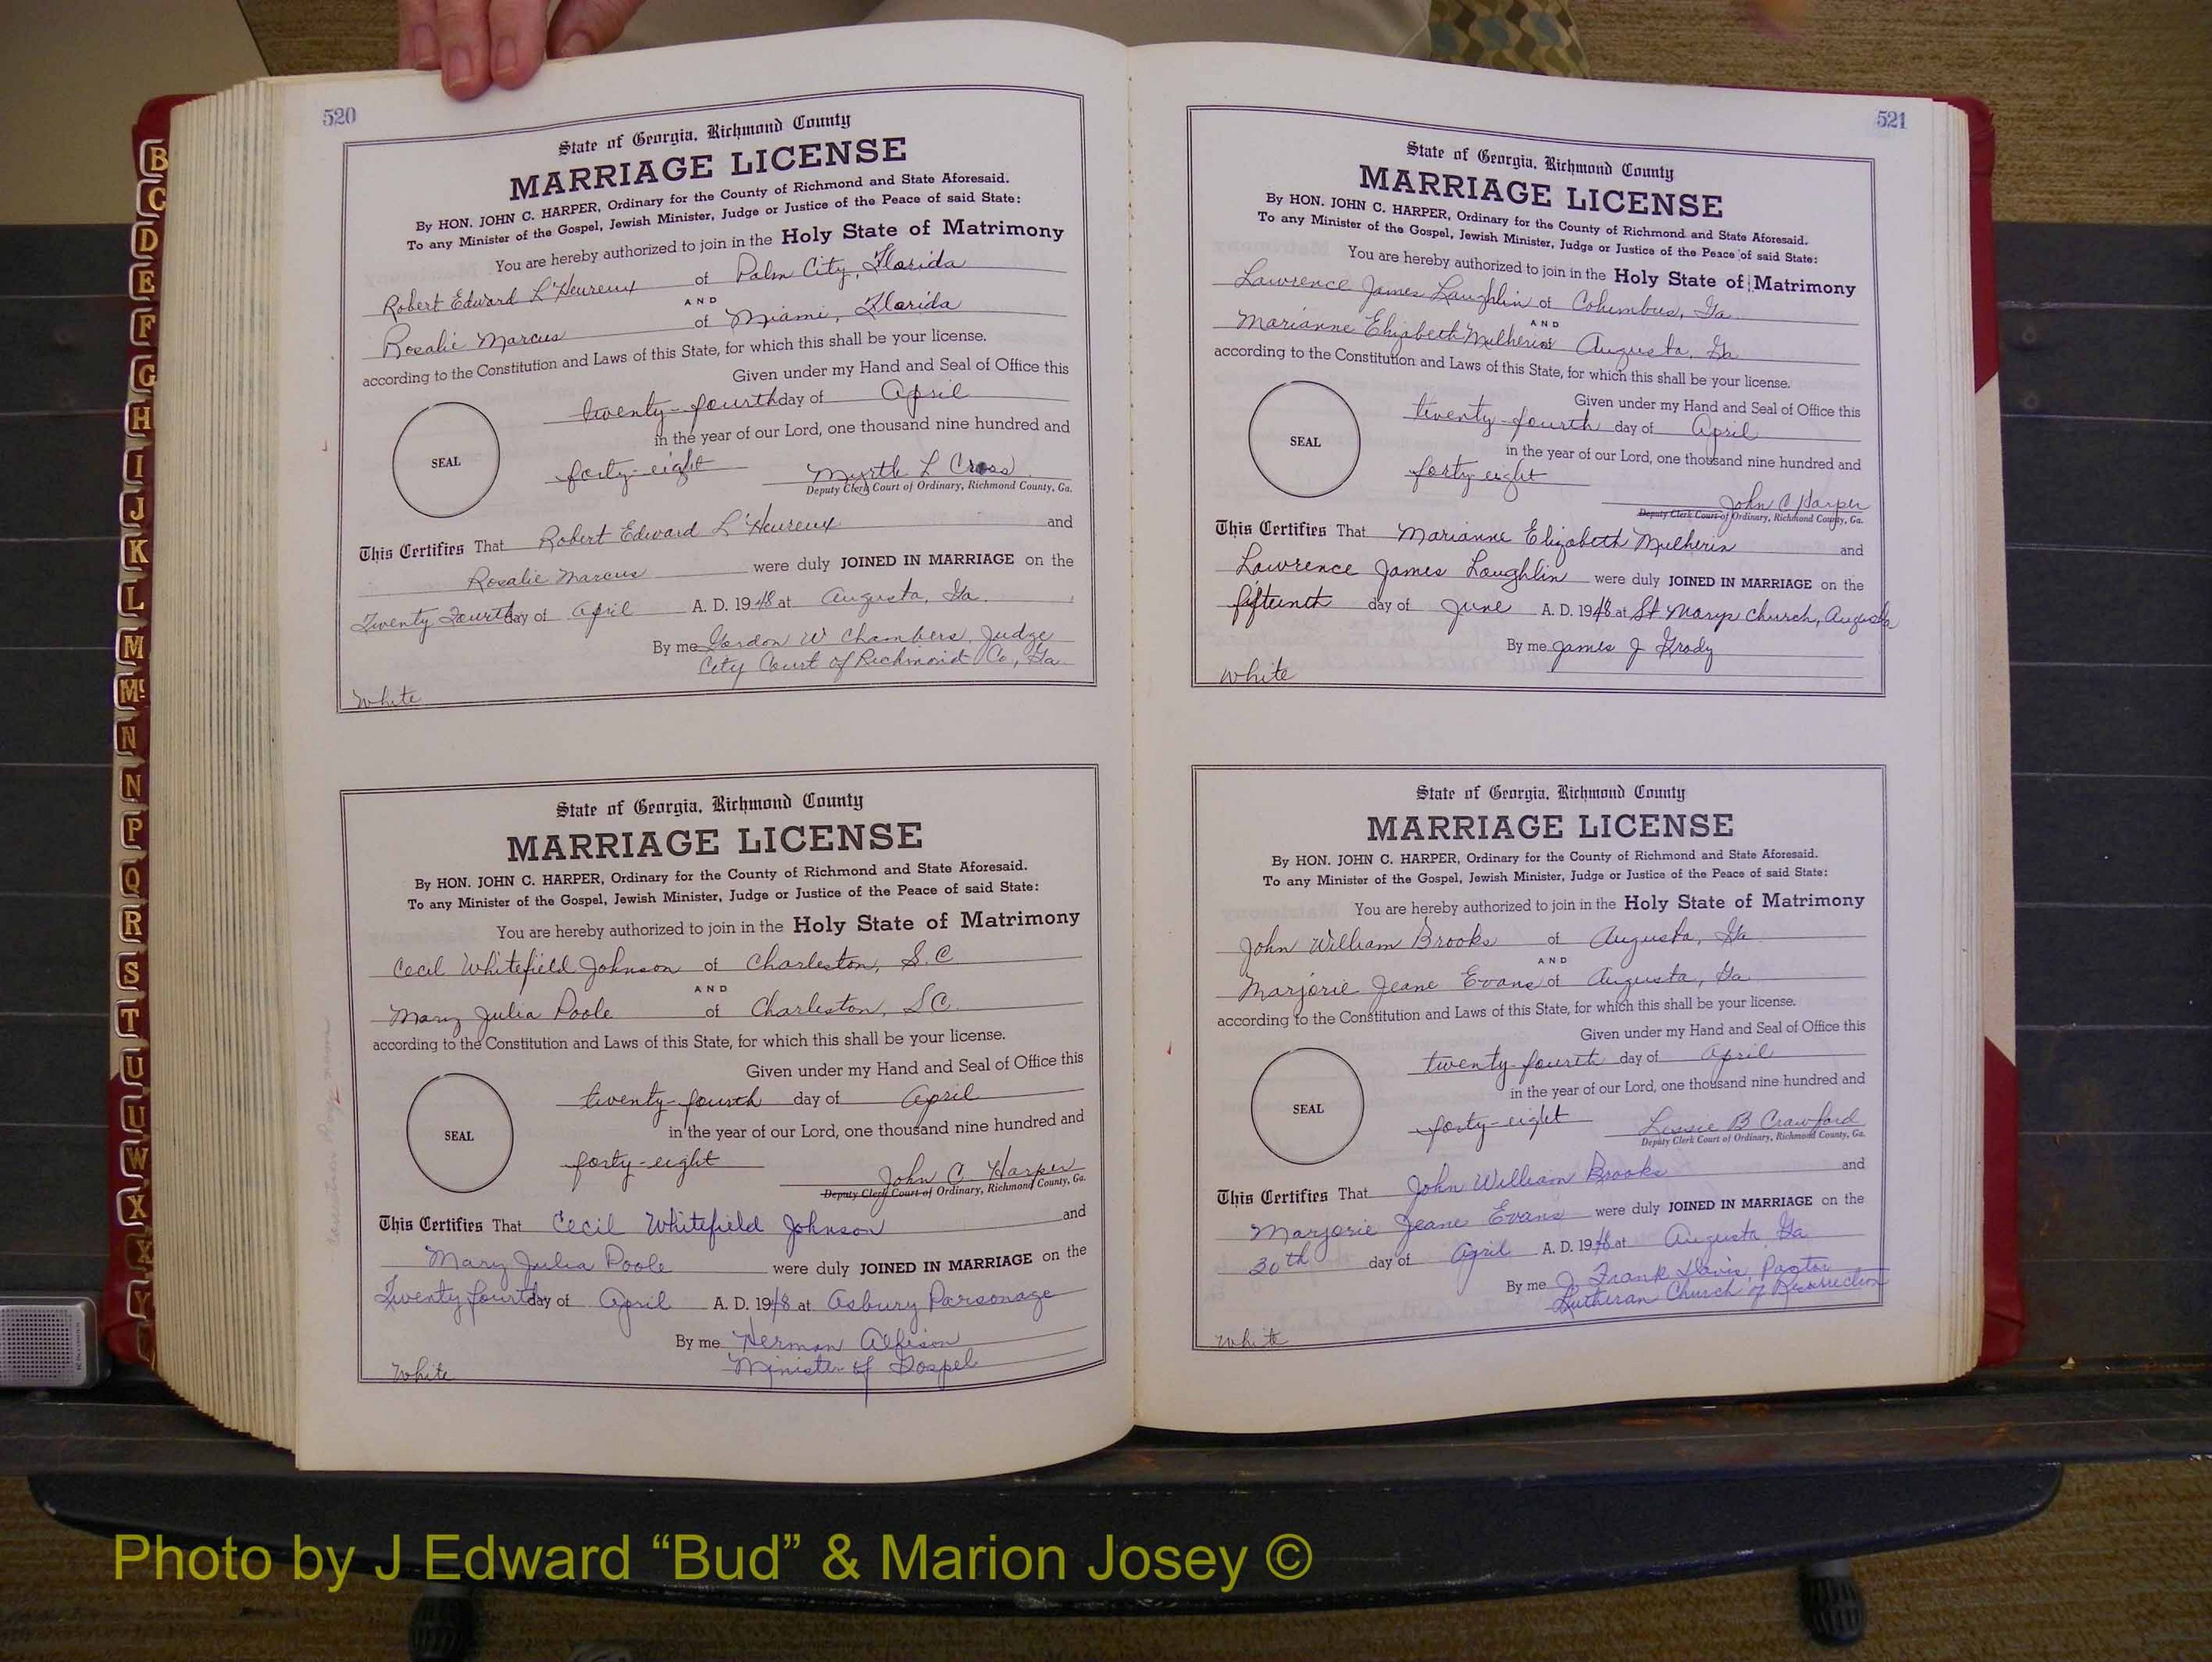 520
State of Georgia, Richmond County
MARRIAGE LICENSE
By HON. JOHN C. HARPER, Ordinary for the County of Richmond and State Aforesaid.
To any Minister of the Gospel, Jewish Minister, Judge or Justice of the Peace of said State:
You are hereby authorized to join in the Holy State of Matrimony
Robert Edward L'Heureux of Palm City, Florida
AND
Rosalie Marcus of Miami, Florida
according to the Constitution and Laws of this State, for which this shall be your license.
Given under my Hand and Seal of Office this
twenty-fourth day of April
in the year of our Lord, one thousand nine hundred and
SEAL
forty-eight Myrtle L Cross
Deputy Clerk Court of Ordinary, Richmond County, Ga.
This Certifies That Robert Edward L'Heureux and
Rosalie Marcus were duly JOINED IN MARRIAGE on the
Twenty Fourth day of April A. D. 1948 at Augusta, Ga.
By me Gordon W Chambers, Judge
City Court of Richmond Co, Ga.
White
State of Georgia, Richmond County
MARRIAGE LICENSE
By HON. JOHN C. HARPER, Ordinary for the County of Richmond and State Aforesaid.
To any Minister of the Gospel, Jewish Minister, Judge or Justice of the Peace of said State:
You are hereby authorized to join in the Holy State of Matrimony
Cecil Whitefield Johnson of Charleston, S.C
AND
Mary Julia Poole of Charleston, S.C.
according to the Constitution and Laws of this State, for which this shall be your license.
Given under my Hand and Seal of Office this
twenty-fourth day of April
in the year of our Lord, one thousand nine hundred and
SEAL
forty-eight John C. Harper
Deputy Clerk Court of Ordinary, Richmond County, Ga.
This Certifies That Cecil Whitefield Johnson and
Mary Julia Poole were duly JOINED IN MARRIAGE on the
Twenty fourth day of April A. D. 1948 at Asbury Parsonage
By me Herman Allison
Minister of Gospel
White
521
State of Georgia, Richmond County
MARRIAGE LICENSE
By HON. JOHN C. HARPER, Ordinary for the County of Richmond and State Aforesaid.
To any Minister of the Gospel, Jewish Minister, Judge or Justice of the Peace of said State:
You are hereby authorized to join in the Holy State of Matrimony
Lawrence James Laughlin of Columbus, Ga.
AND
Marianne Elizabeth Mulherin of Augusta, Ga
according to the Constitution and Laws of this State, for which this shall be your license.
Given under my Hand and Seal of Office this
twenty-fourth day of April
in the year of our Lord, one thousand nine hundred and
SEAL
forty eight John C Harper
Deputy Clerk Court of Ordinary, Richmond County, Ga.
This Certifies That Marianne Elizabeth Mulherin and
Lawrence James Loughlin were duly JOINED IN MARRIAGE on the
fifteenth day of June A. D. 1948 at St Marys Church, Augusta
By me James J Grady
White
State of Georgia, Richmond County
MARRIAGE LICENSE
By HON. JOHN C. HARPER, Ordinary for the County of Richmond and State Aforesaid.
To any Minister of the Gospel, Jewish Minister, Judge or Justice of the Peace of said State:
You are hereby authorized to join in the Holy State of Matrimony
John William Brooks of Augusta, Ga
AND
Marjorie Jeane Evans of Augusta, Ga
according to the Constitution and Laws of this State, for which this shall be your license.
Given under my Hand and Seal of Office this
twenty fourth day of April
in the year of our Lord, one thousand nine hundred and
SEAL
forty-eight Lessie B Crawford
Deputy Clerk Court of Ordinary, Richmond County, Ga.
This Certifies That John William Brooks and
Marjorie Jeane Evans were duly JOINED IN MARRIAGE on the
30th day of April A. D. 1948 at Augusta Ga
By me J. Frank Davis, Pastor
Lutheran Church of Resurrection
White
B
C
D
E
F
G
H
I
J
K
L
M
Mc
N
N
P
Q
R
S
T
U
U
W
X
X
Y
Photo by J Edward “Bud” & Marion Josey ©